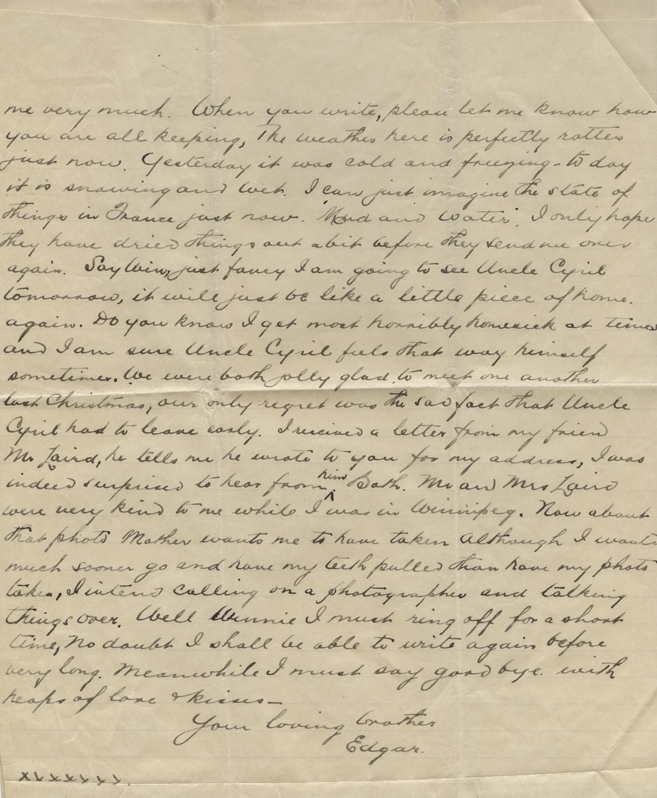 me very much. When you write, please let me know how
you are all keeping, The weather here is perfectly rotten
just now. Yesterday it was cold and freezing - to day
it is snowing and wet. I can just imagine the state of
things in France just now. "Mud and Water". I only hope
they have dried things out a bit before they send me over
again. Say Win, just fancy I am going to see Uncle Cyril
tomorrow, it will just be like a little piece of home.
again. Do you know I get most horribly homesick at times
and I am sure Uncle Cyril feels that way himself
sometimes. We were both jolly glad to meet one another
last Christmas, our only regret was the sad fact that Uncle
Cyril had to leave early. I received a letter from my friend
Mr Laird, he tells me he wrote to you for my address, I was
indeed surprised to hear from him. Both. Mr and Mrs Laird
were very kind to me while I was in Winnipeg. Now about
that photo Mother wants me to have taken Although I would
much sooner go and have my teeth pulled than have my photo
taken, I intend calling on a photographer and talking
things over. Well Winnie I must ring off for a short
time, No doubt I shall be able to write again before
very long. Meanwhile I must say good bye. with
heaps of love & kisses -
Your loving brother
Edgar.
xxxxxxx.